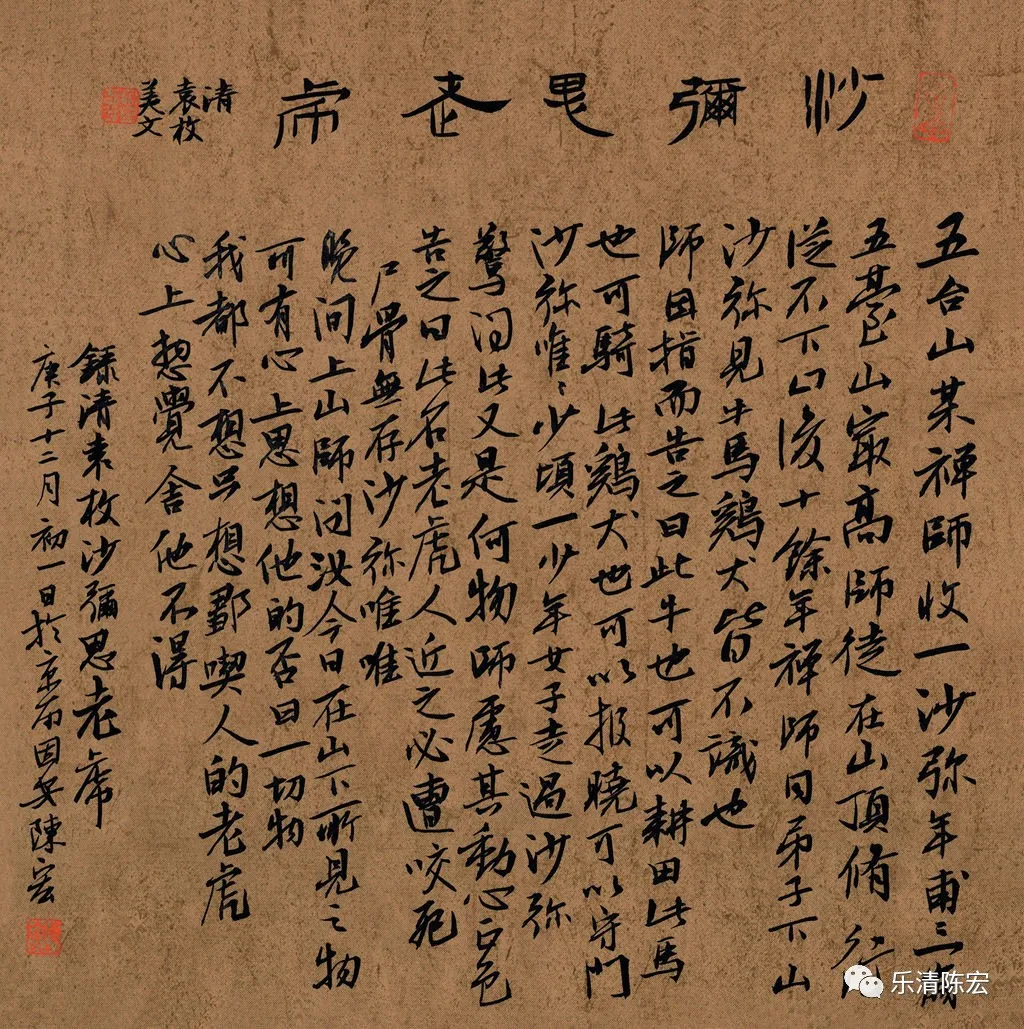 沙彌思老虎
清
袁枚
美文
五台山某禅師收一沙弥年甫三歲
五臺山寂高師徒在山頂脩行
從不下山後十餘年禅師同弟子下山
沙弥見牛馬鷄犬皆不識也
師因指而告之曰此牛也可以耕田此馬
也可騎此鷄犬也可以报曉可以守門
沙弥唯〻少頃一少年女子走過沙弥
驚问此又是何物師慮其動心正色
告之曰此名老虎人近之必遭咬死
尸骨無存沙弥唯唯
晚间上山師问汝今日在山下所見之物
可有心上思想他的否曰一切物
我都不想只想那喫人的老虎
心上想覺舍他不得
録清袁枚沙彌思老虎
庚子十二月初一日於京南固安陳宏
乐清陈宏